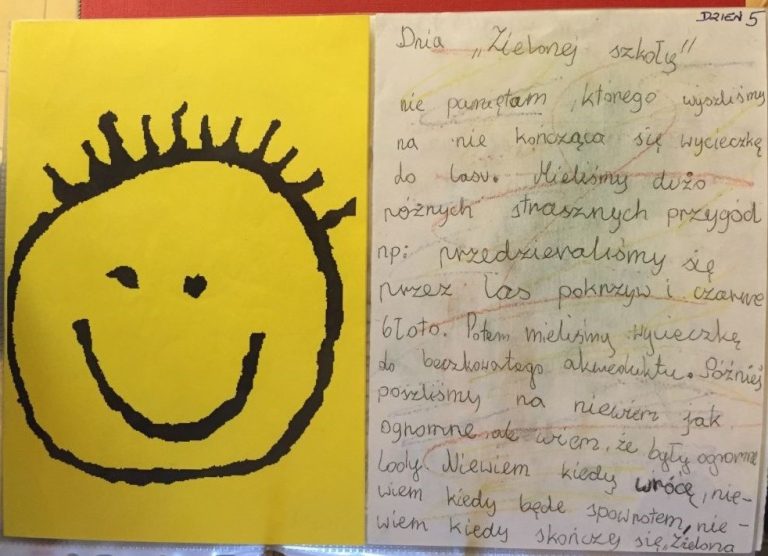 DZIEŃ 5
Dnia „Zielonej szkoły"
nie pamiętam, którego wyszliśmy
na nie kończącą się wycieczkę
do lasu. Mieliśmy dużo
różnych strasznych przygód
np: przedzieraliśmy się
przez las pokrzyw i czarne
błoto. Potem mieliśmy wycieczkę
do beczkowatego akweduktu. Później
poszliśmy na niewiem jak
ogromne ale wiem, że były ogromne
lody. Niewiem kiedy wrócę, nie-
wiem kiedy będe spowrotem, nie-
wiem kiedy skończy się „Zielona